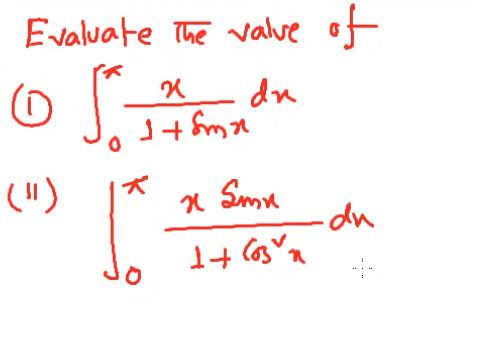 Evaluate the value of
(I) ∫₀^π x / (1 + Sin x) dx
(II) ∫₀^π x Sin x / (1 + Cos² x) dx